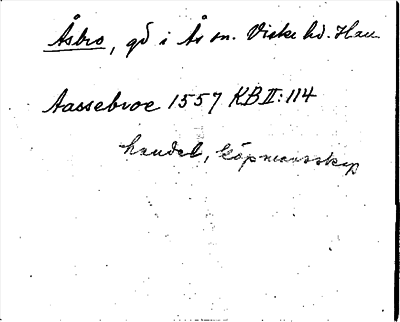 Åsbro, gd i Ås sn. Viske hd. Hall.
Aassebroe 1557 KB II: 114
handel, köpmansskap